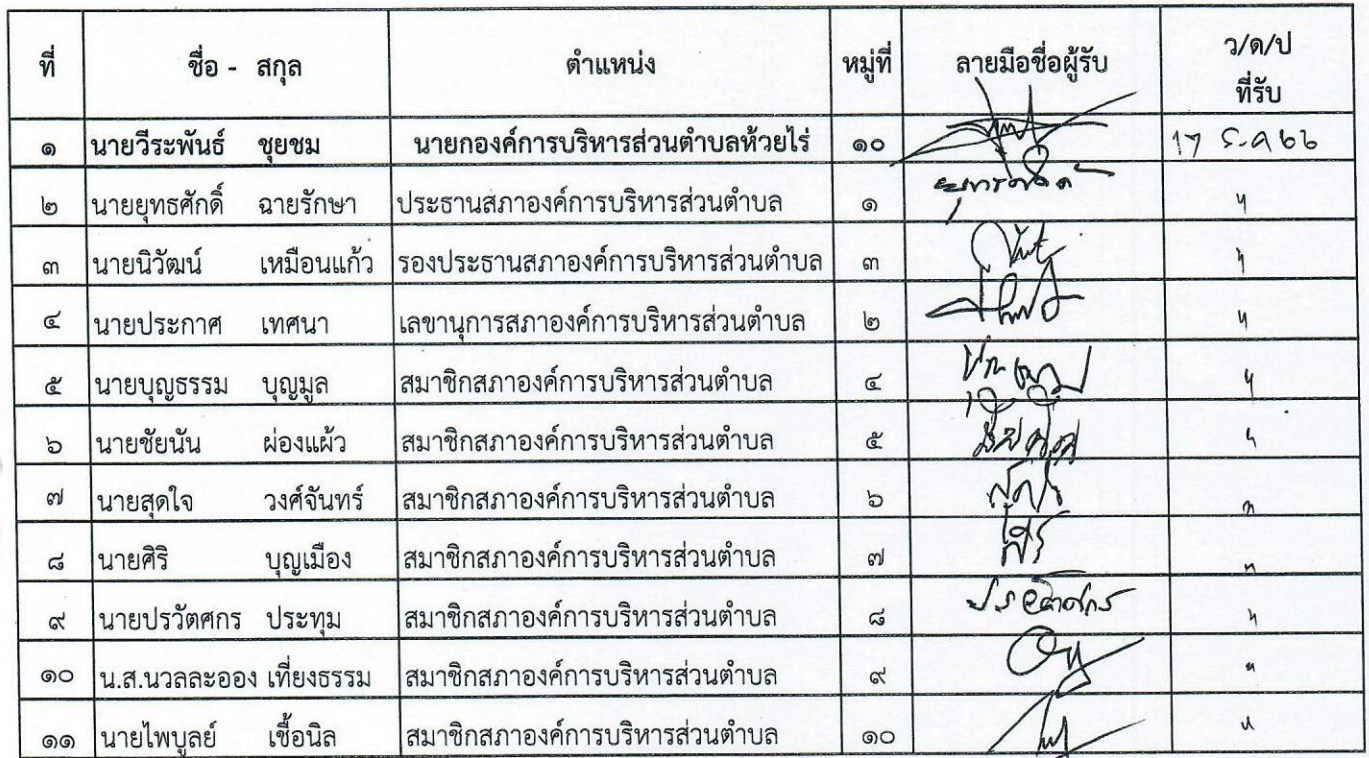 ที่ ชื่อ - สกุล ตำแหน่ง หมู่ที่ ลายมือชื่อผู้รับ ว/ด/ป
ที่รับ
๑ นายวีระพันธ์ ชุยชม นายกองค์การบริหารส่วนตำบลห้วยไร่ ๑๐ 17 ธ.ค 66
๒ นายยุทธศักดิ์ ฉายรักษา ประธานสภาองค์การบริหารส่วนตำบล ๑ "
๓ นายนิวัฒน์ เหมือนแก้ว รองประธานสภาองค์การบริหารส่วนตำบล ๓ "
๔ นายประกาศ เทศนา เลขานุการสภาองค์การบริหารส่วนตำบล ๒ "
๕ นายบุญธรรม บุญมูล สมาชิกสภาองค์การบริหารส่วนตำบล ๔ "
๖ นายชัยนัน ผ่องแผ้ว สมาชิกสภาองค์การบริหารส่วนตำบล ๕ "
๗ นายสุดใจ วงศ์จันทร์ สมาชิกสภาองค์การบริหารส่วนตำบล ๖ "
๘ นายศิริ บุญเมือง สมาชิกสภาองค์การบริหารส่วนตำบล ๗ ศิริ "
๙ นายปรวัตศกร ประทุม สมาชิกสภาองค์การบริหารส่วนตำบล ๘ "
๑๐ น.ส.นวลละออง เที่ยงธรรม สมาชิกสภาองค์การบริหารส่วนตำบล ๙ "
๑๑ นายไพบูลย์ เชื้อนิล สมาชิกสภาองค์การบริหารส่วนตำบล ๑๐ "